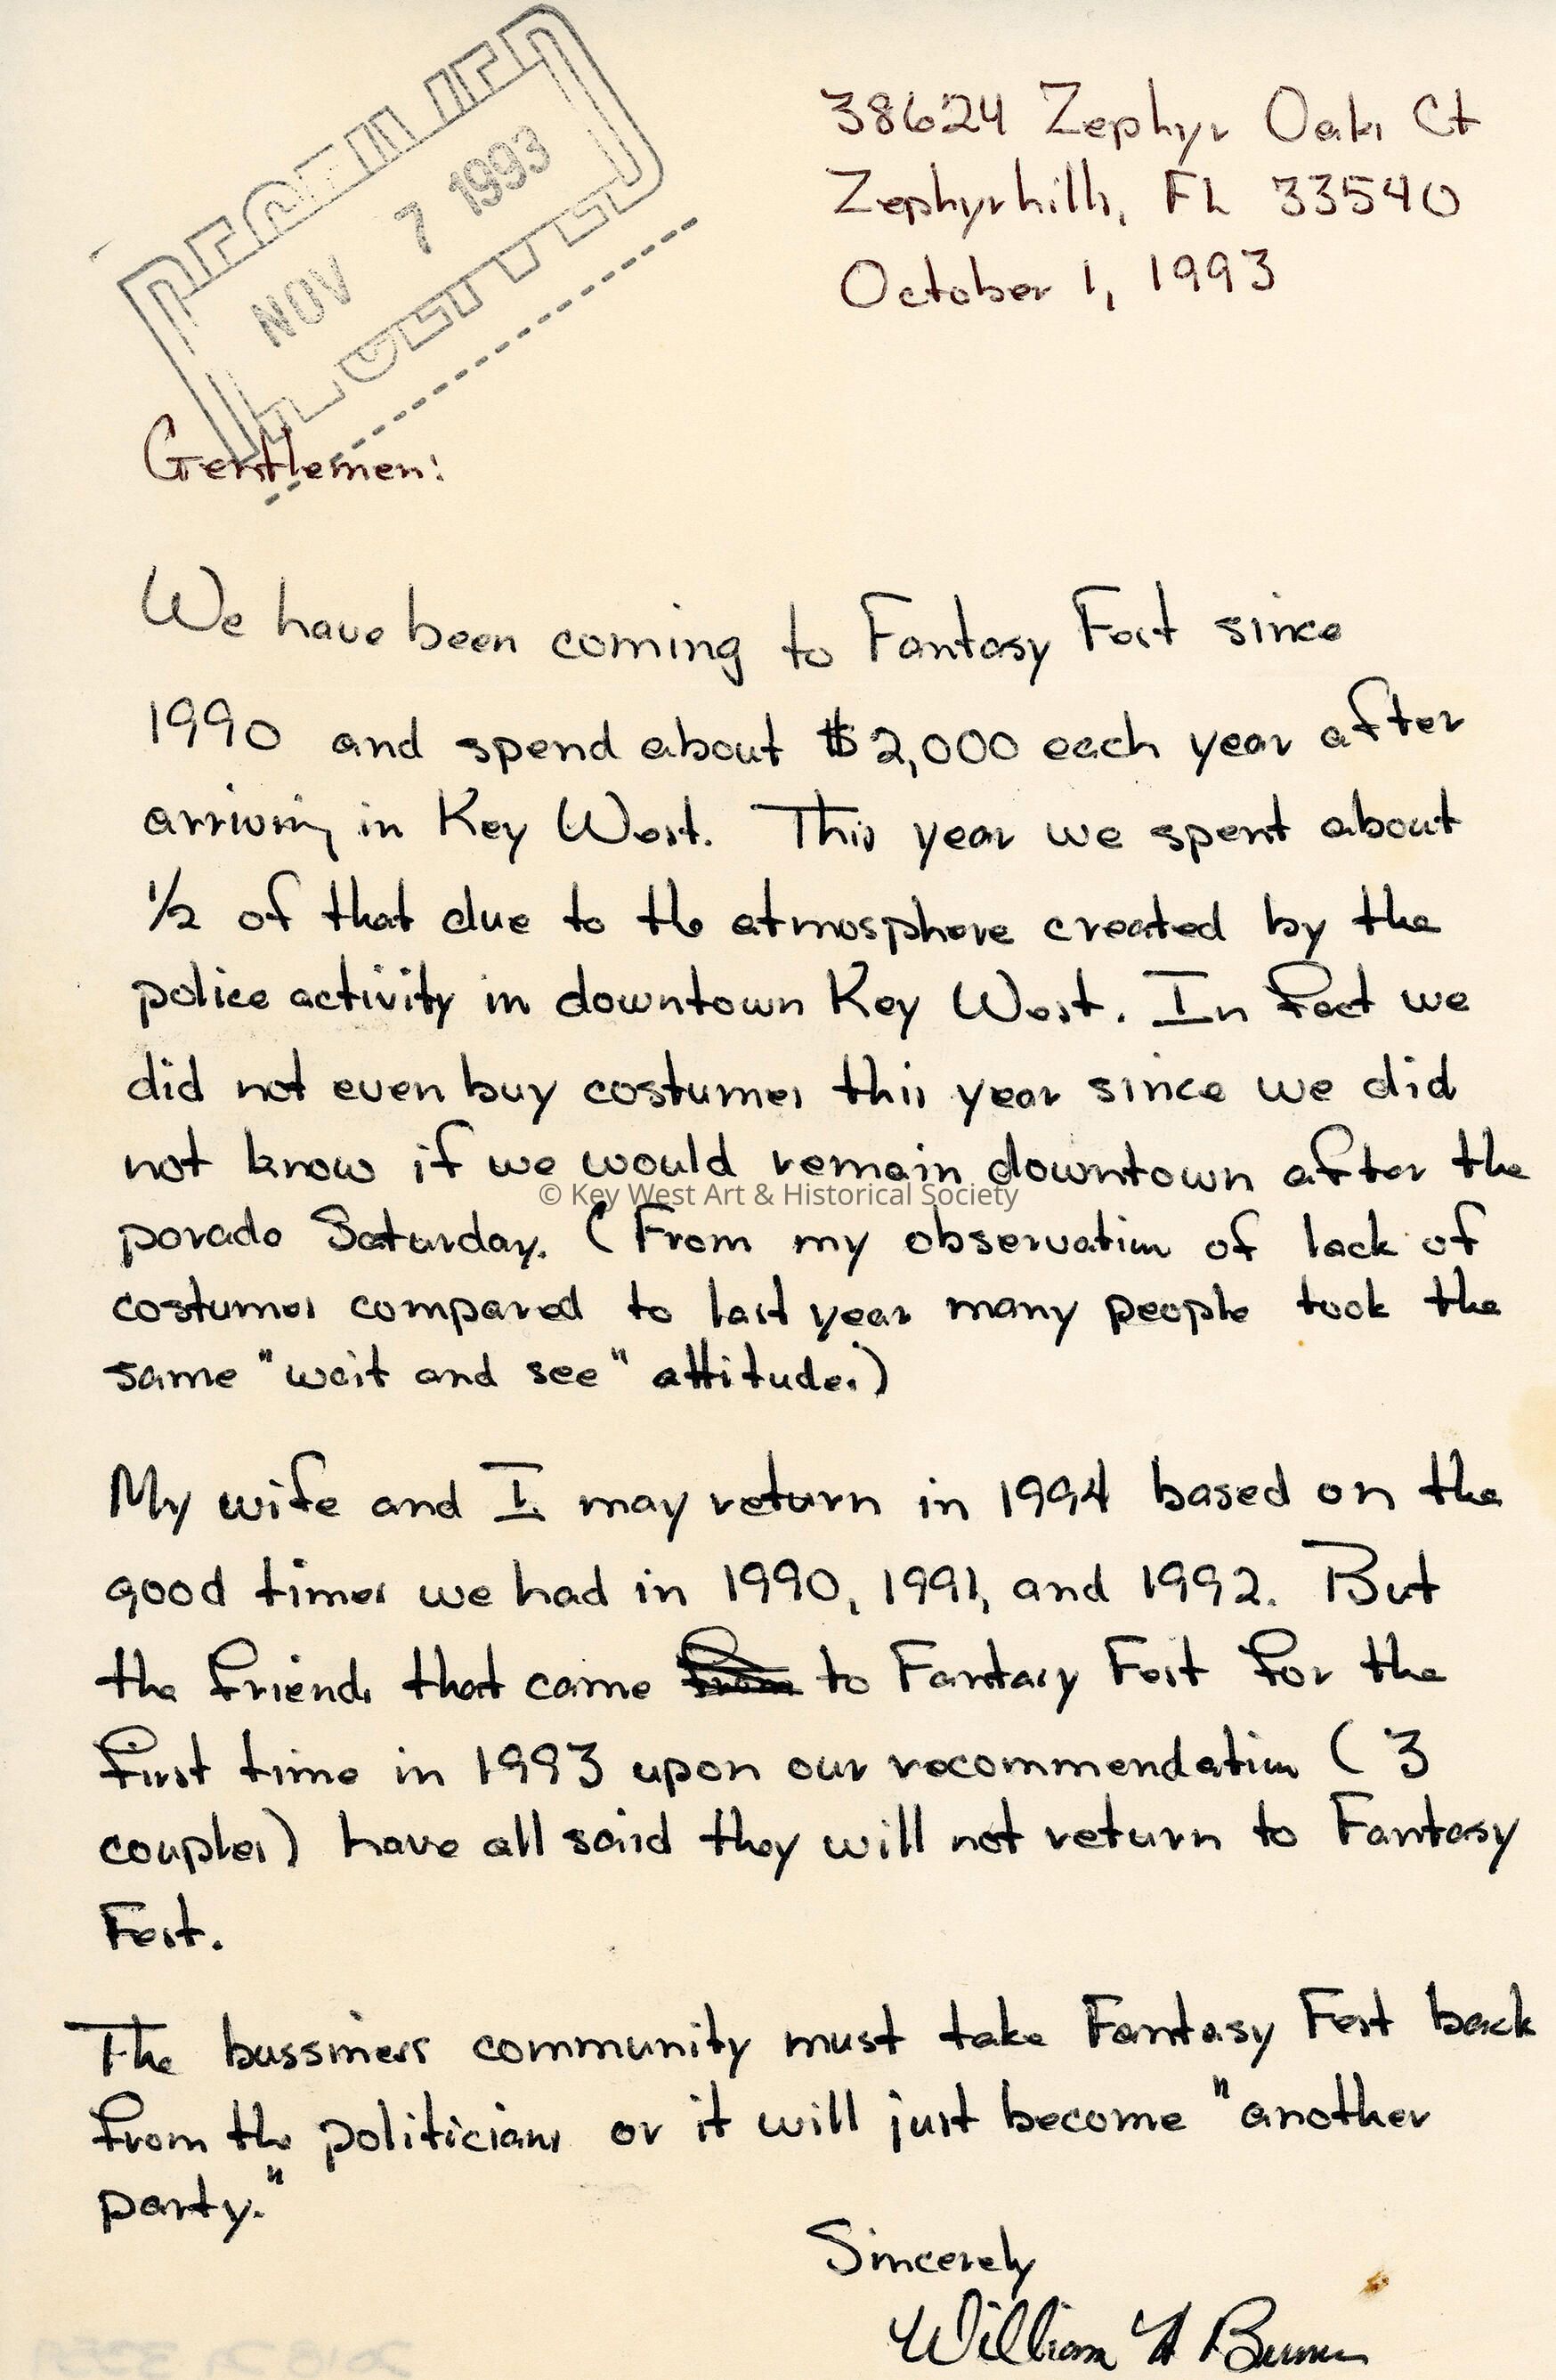 NOV 7 1993
38624 Zephyr Oaks Ct
Zephyrhills, FL 33540
October 1, 1993
Gentlemen:
We have been coming to Fantasy Fest since
1990 and spend about $2,000 each year after
arriving in Key West. This year we spent about
1/2 of that due to the atmosphere created by the
police activity in downtown Key West. In fact we
did not even buy costumes this year since we did
not know if we would remain downtown after the
© Key West Art & Historical Society
parade Saturday. (From my observation of lack of
costumes compared to last year many people took the
same "wait and see" attitude.)
My wife and I may return in 1994 based on the
good times we had in 1990, 1991, and 1992. But
the friends that came to Fantasy Fest for the
first time in 1993 upon our recommendation (3
couples) have all said they will not return to Fantasy
Fest.
The bussiness community must take Fantasy Fest back
from the politicians or it will just become "another
party."
Sincerely
William H